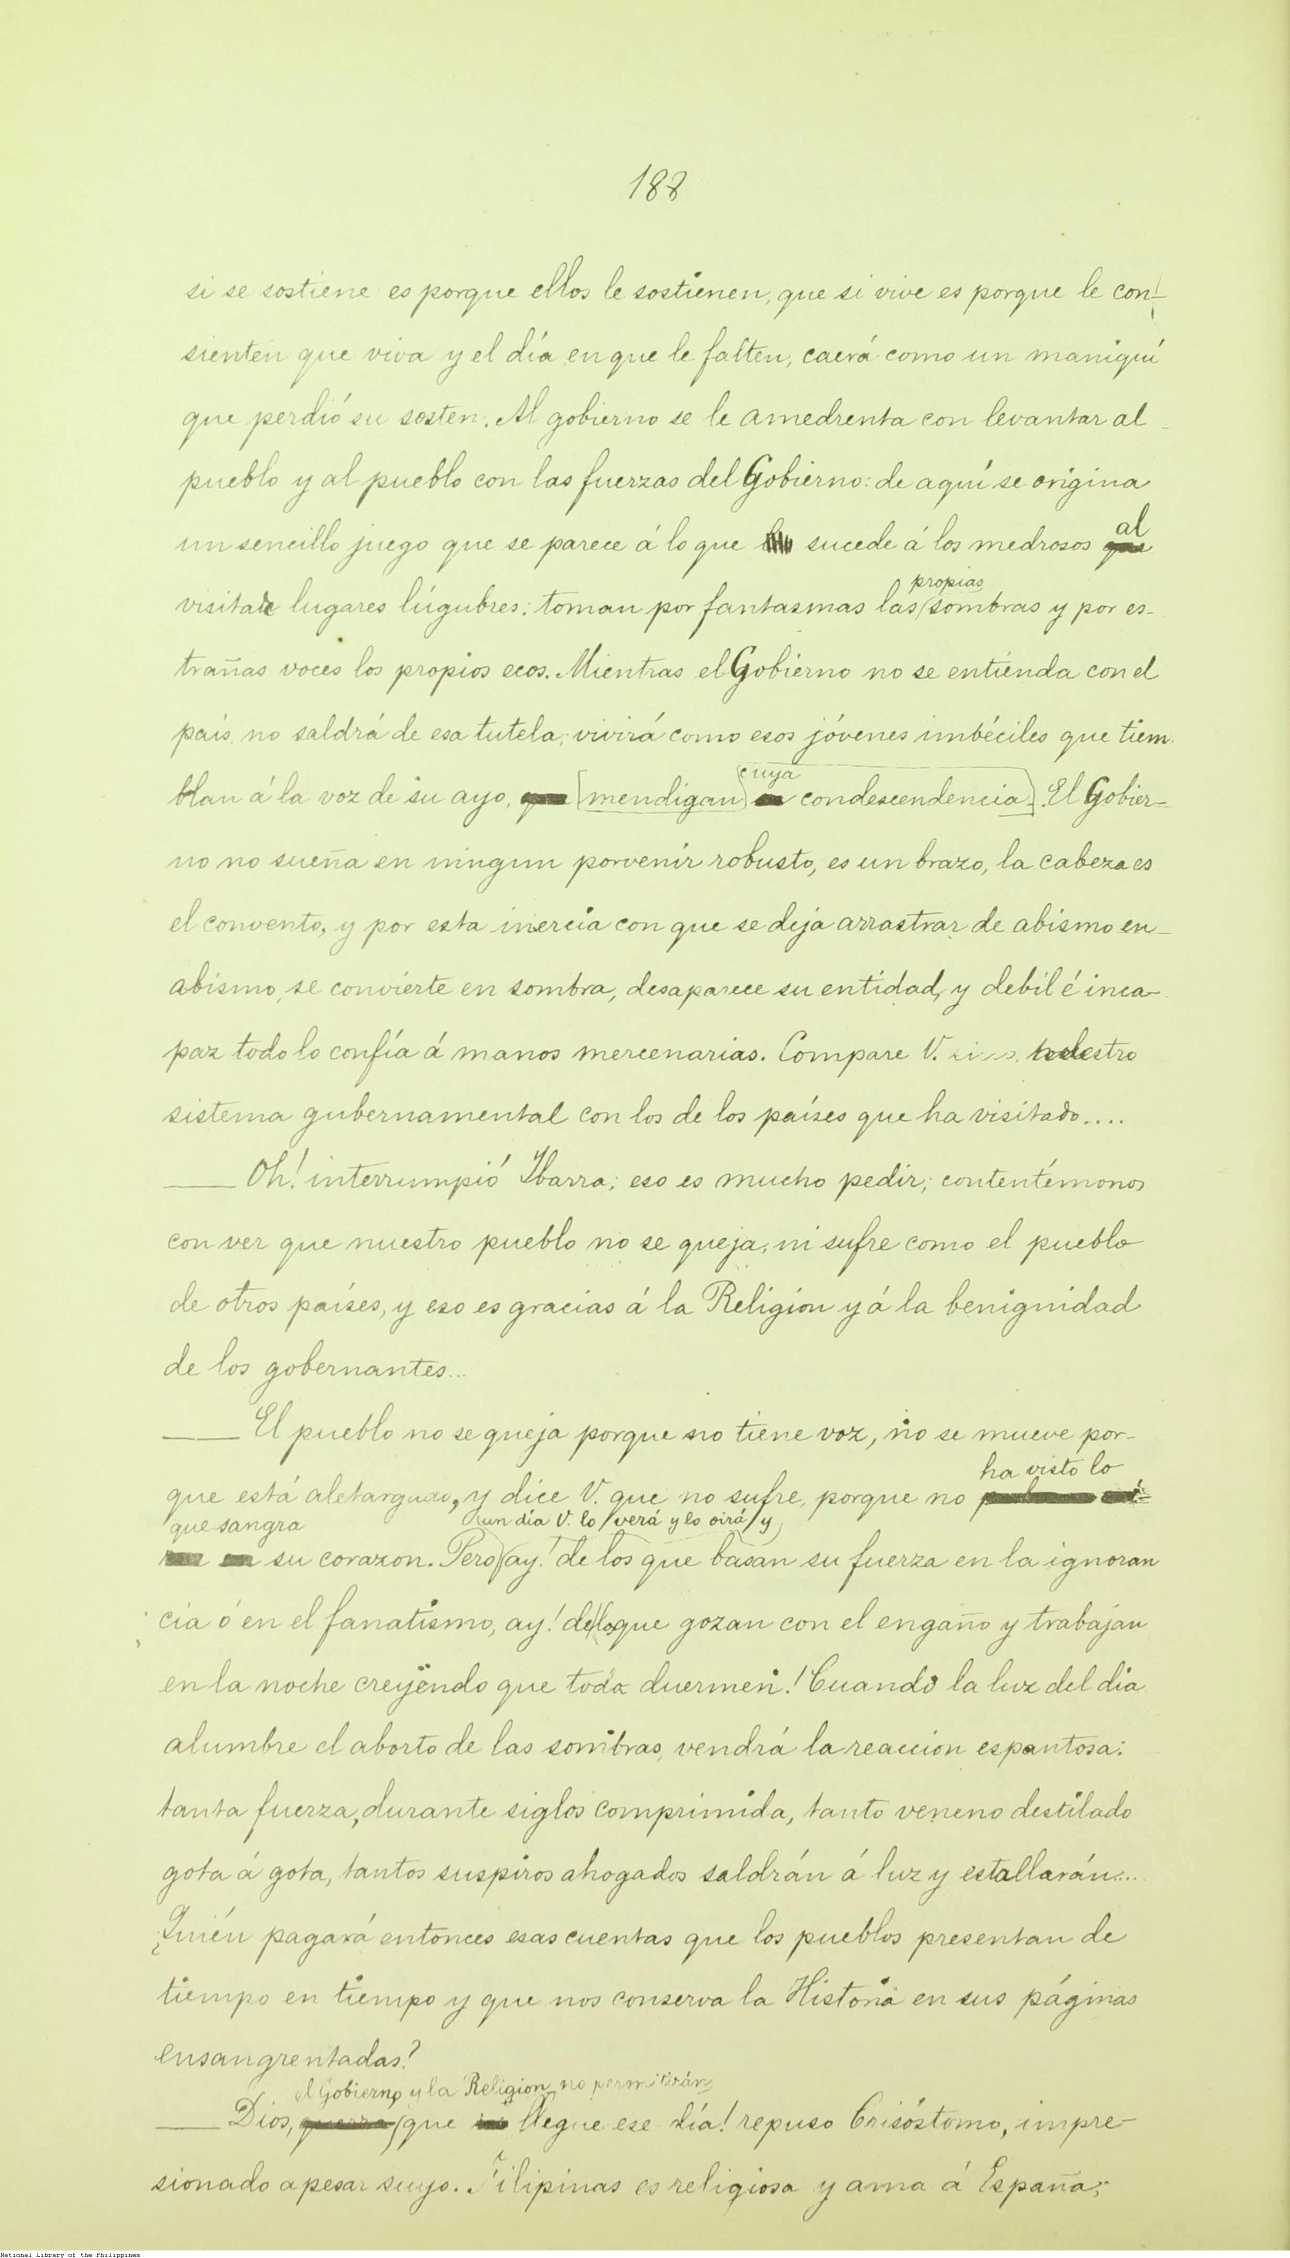 188
si se sostiene es porque ellos le sostienen, que si vive es porque le con-
sienten que viva y el día en que le falten, caerá como un maniquí
que perdió su sosten. Al gobierno se le amedrenta con levantar al
pueblo y al pueblo con las fuerzas del Gobierno: de aquí se origina
un sencillo juego que se parece á lo que sucede á los medrosos al
propias
visitar lugares lúgubres: toman por fantasmas las sombras y por es-
trañas voces los propios ecos. Mientras el Gobierno no se entienda con el
país no saldrá de esa tutela; vivirá como esos jóvenes imbéciles que tiem
cuya
blan á la voz de su ayo, mendigan condescendencia. El Gobier-
no no sueña en ningun porvenir robusto, es un brazo, la cabeza es
el convento, y por esta inercia con que se deja arrastrar de abismo en
abismo, se convierte en sombra, desaparece su entidad, y debil é inca-
paz todo lo confía á manos mercenarias. Compare V. nuestro
sistema gubernamental con los de los países que ha visitado....
— Oh! interrumpió Ibarra; eso es mucho pedir; contentémonos
con ver que nuestro pueblo no se queja, ni sufre como el pueblo
de otros países, y eso es gracias á la Religion y á la benignidad
de los gobernantes...
— El pueblo no se queja porque no tiene voz, no se mueve por-
ha visto lo
que está aletargado, y dice V. que no sufre, porque no
que sangra un día V. lo verá y lo oirá y
su corazon. Pero ay! de los que basan su fuerza en la ignoran
cia ó en el fanatismo, ay! de los que gozan con el engaño y trabajan
en la noche creyendo que todo duermen! Cuando la luz del día
alumbre el aborto de las sombras, vendrá la reaccion espantosa:
tanta fuerza, durante siglos comprimida, tanto veneno destilado
gota á gota, tantos suspiros ahogados saldrán á luz y estallarán...
¿Quién pagará entonces esas cuentas que los pueblos presentan de
tiempo en tiempo y que nos conserva la Historia en sus páginas
ensangrentadas?
el Gobierno y la Religion no permitirán
— Dios, que llegue ese día! repuso Crisóstomo, impre-
sionado apesar suyo. Filipinas es religiosa y ama á España;
National Library of the Philippines